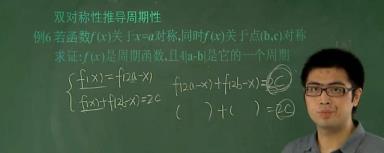 双对称性推导周期性
例6 若函数f(x)关于x=a对称,同时f(x)关于点(b,c)对称
求证:f(x)是周期函数,且4|a-b|是它的一个周期
f(x)=f(2a-x)
f(x)+f(2b-x)=2C
f(2a-x)+f(2b-x)=2C
( )+( )=2C